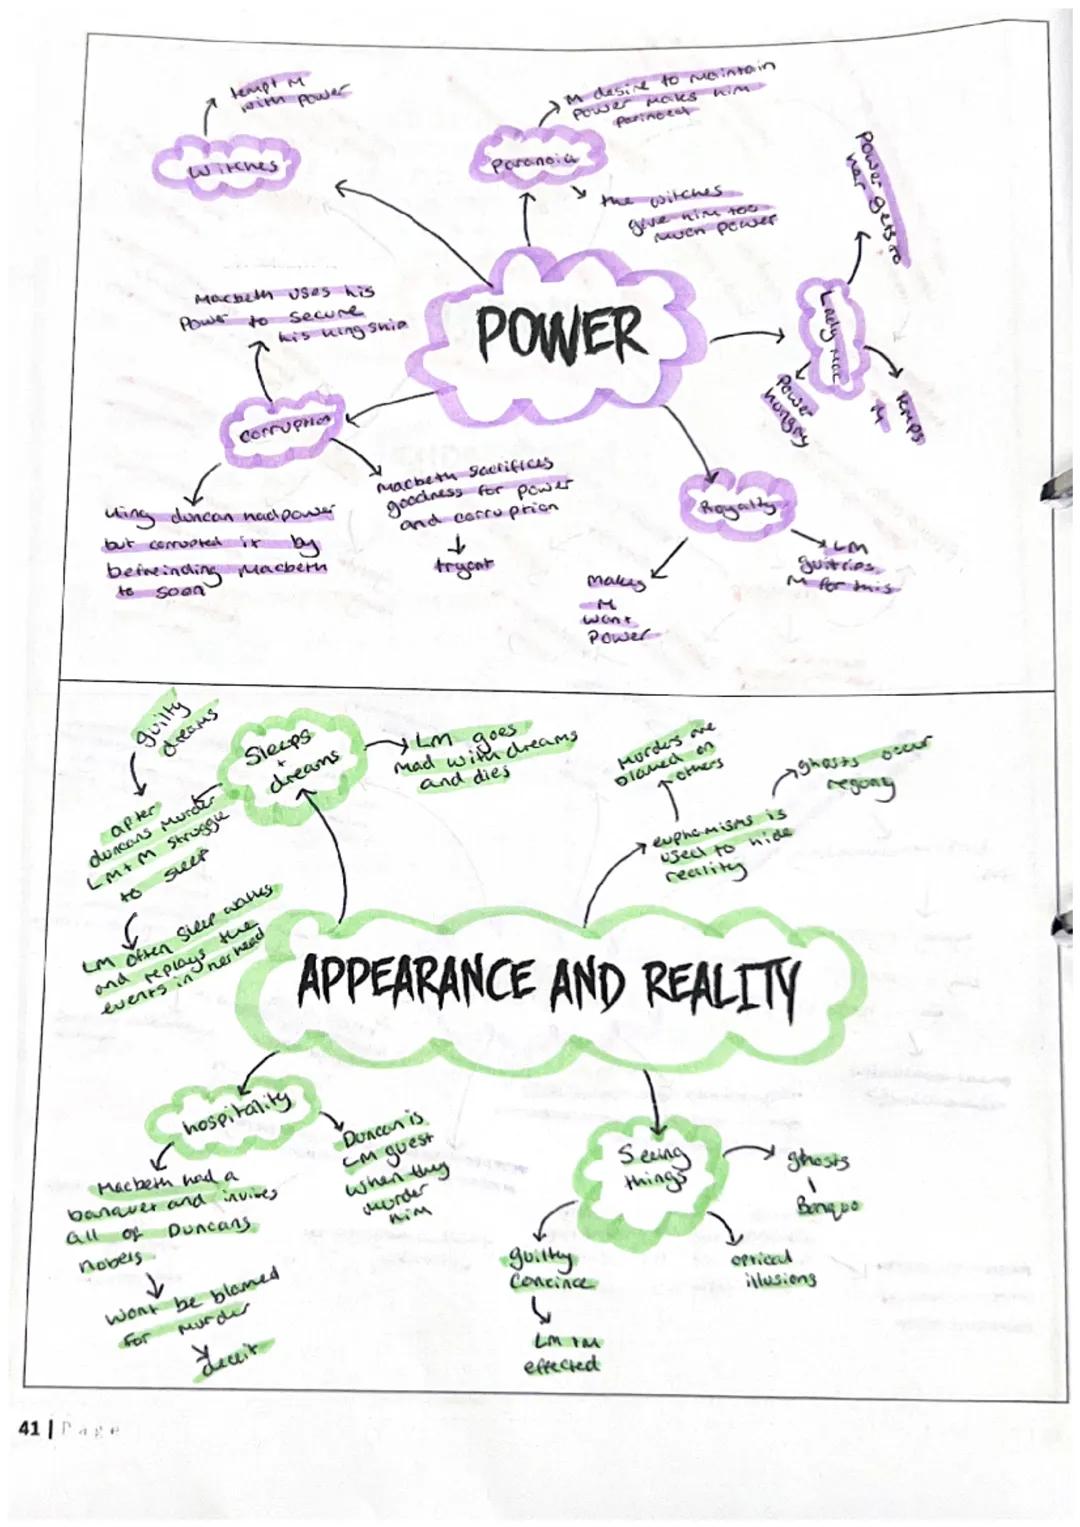 tempt M
with power
Witches
M desire to maintain
power makes him
parinoed
Paranoia
the witches
give him too
much power
power gets to
her
Lady Mac
power
hungry
temps
M
POWER
Macbeth uses his
power to secure
his kingship
corruption
king duncan had power
but corrupted it by
to soon
Macbeth sacrifices
goodness for power
and corruption
tryant
Royalty
makes
M
want
power
LM
guitrips
M for this
guilty
dreams
Sleeps
+
dreams
LM goes
mad with dreams
and dies
after
duncans murder
LM+M struggle
to sleep
LM often sleep walks
and replays the
events in her head
Murders are
blamed on
others
ghosts occur
euphamisms is
used to hide
reality
APPEARANCE AND REALITY
hospitality
Macbeth had a
banquet and invites
all of Duncans
nobels
wont be blamed
for murder
deceit
Duncan is
LM guest
when they
murder
him
Seeing
things
ghosts
Banquo
optical
illusions
guiltky
concince
LM + M
effected
41 | Page